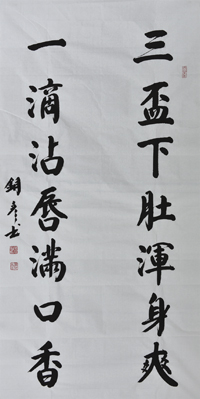 三盃下肚渾身爽
一滴沾唇滿口香